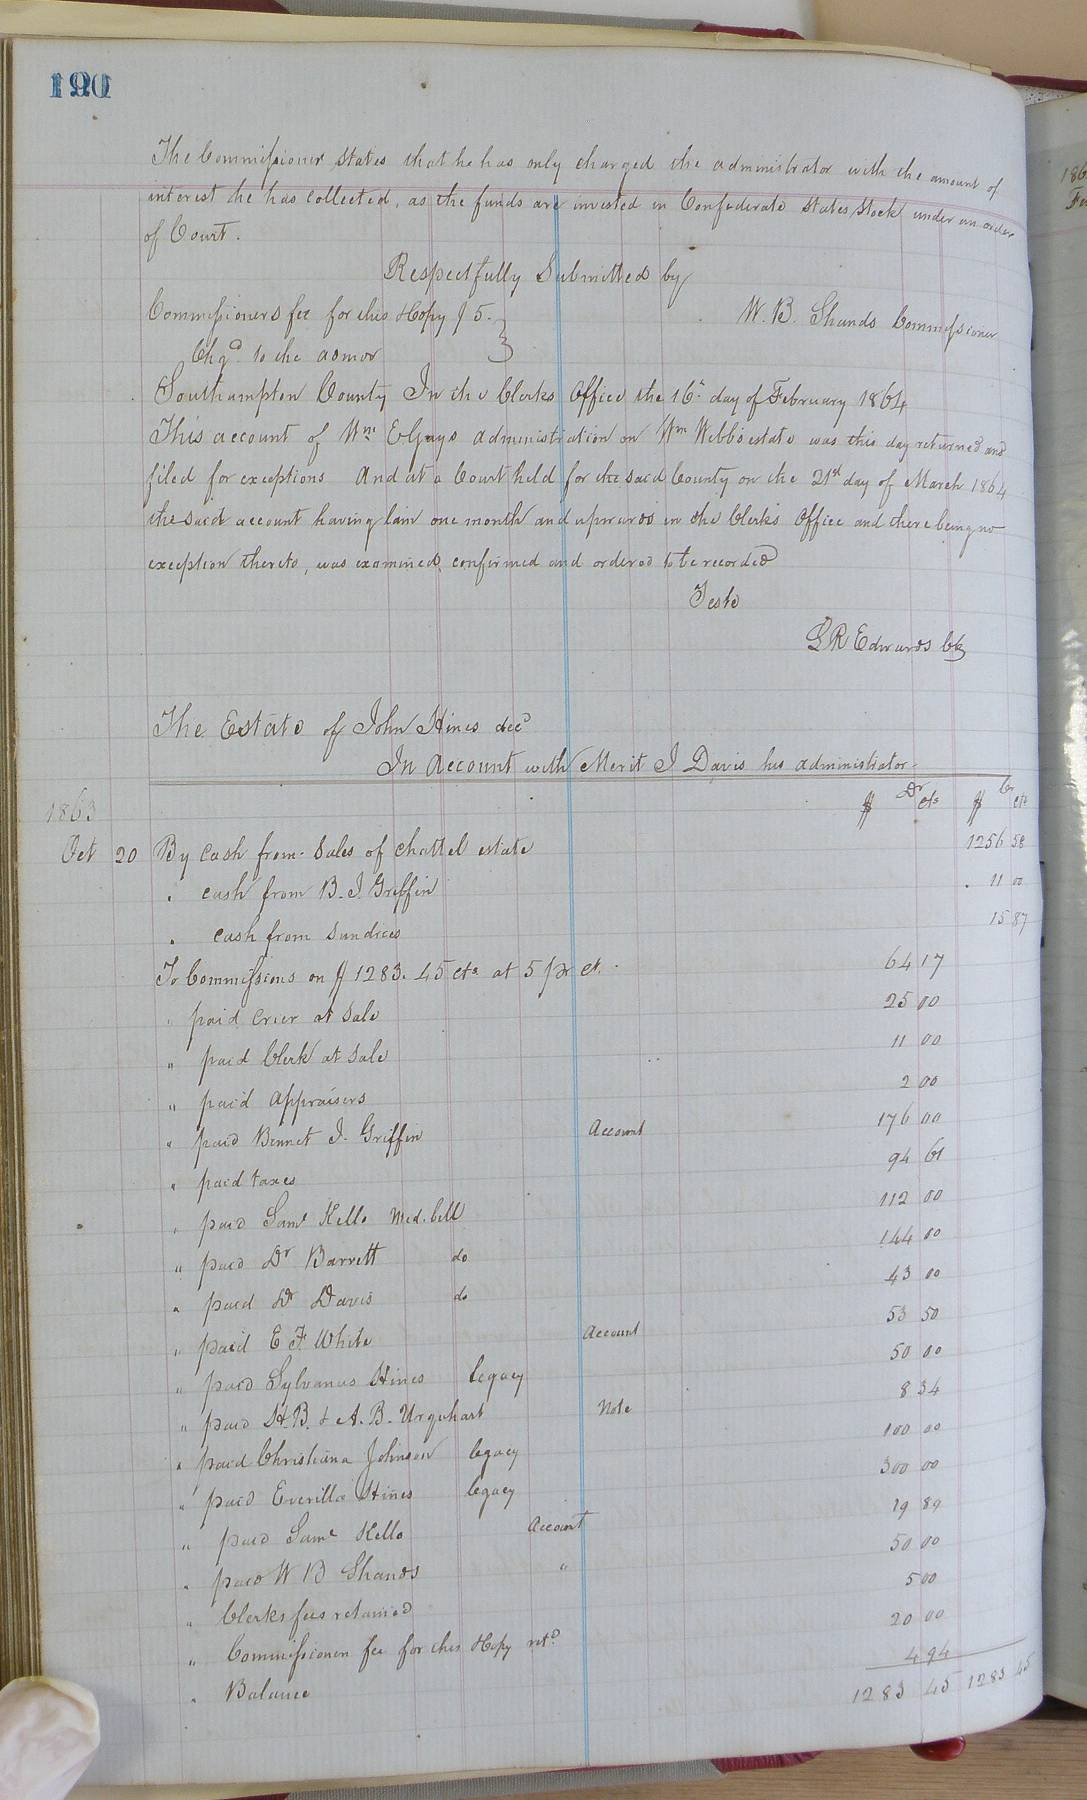 The Commissioner states that he has only charged the administrator with the amount of
interest he has collected, as the funds are invested in Confederate States Stock under an order
of Court.
Respectfully Submitted by
Commissioners fee for this & Copy $5.
W. B. Shands Commissioner
Chgd to the admor
Southampton County In the Clerks Office the 16th day of February 1864
This account of Wm E Grays administration on Wm Webbs estate was this day returned and
filed for exceptions And at a Court held for the said County on the 21st day of March 1864
the said account having lain one month and upwards in the Clerks Office and there being no
exception thereto, was examined, confirmed and ordered to be recorded
Teste
L R Edwards Clk
The Estate of John Hines decd
In Account with Merit J Davis his administrator
Dr Cr
1863 $ cts $ cts
Oct 20 By cash from Sales of chattel estate 1256 58
" cash from B. J. Griffin 11 00
" cash from Sundries 15 87
To Commissions on $1283.45 cts at 5 pr ct. 64 17
" paid crier at Sale 25 00
" paid Clerk at Sale 11 00
" paid appraisers 2 00
" paid Bennet J. Griffin Account 176 00
" paid taxes 94 61
" paid Saml Kello Med. bill 112 00
" paid Dr Barrett do 144 00
" paid Dr Davis do 43 00
" paid E F White Account 53 50
" paid Sylvanus Hines legacy 50 00
" paid H. B. & A. B. Urquhart Note 8 34
" paid Christiana Johnson legacy 100 00
" paid Everilla Hines legacy 300 00
" paid Saml Kello Account 19 89
" paid W B Shands " 50 00
" Clerks fees retained 5 00
" Commissioners fee for this & Copy retd 20 00
" Balance 4 94
1283 45 1283 45